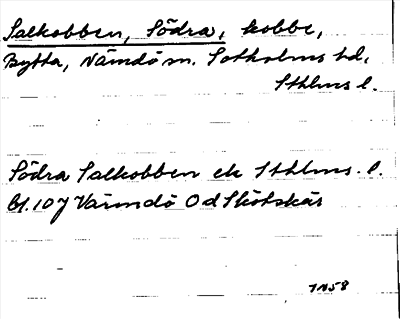 Salkobben, Södra, kobbe,
Bytta, Nämdö sn. Sotholms hd,
Sthlms l.
Södra Salkobben ek Sthlms. l.
bl. 107 Värmdö Od Skötskär
1958